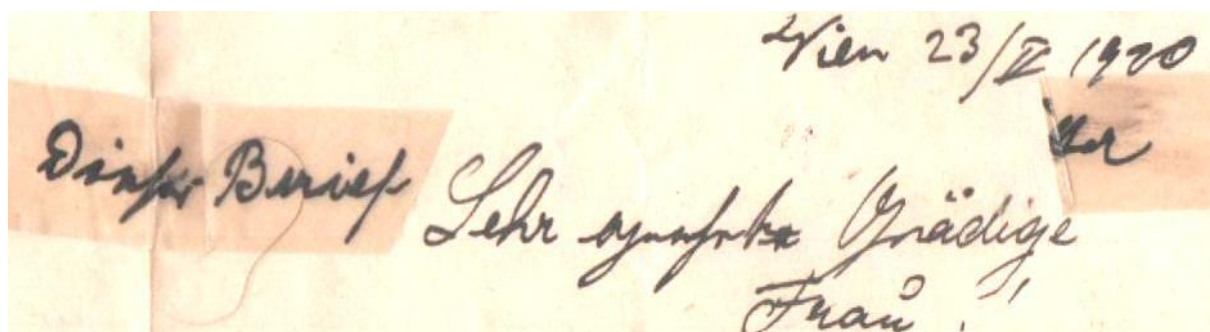 Wien 23/II 1920
Dieser Brief
Sehr geehrte Gnädige
Frau!